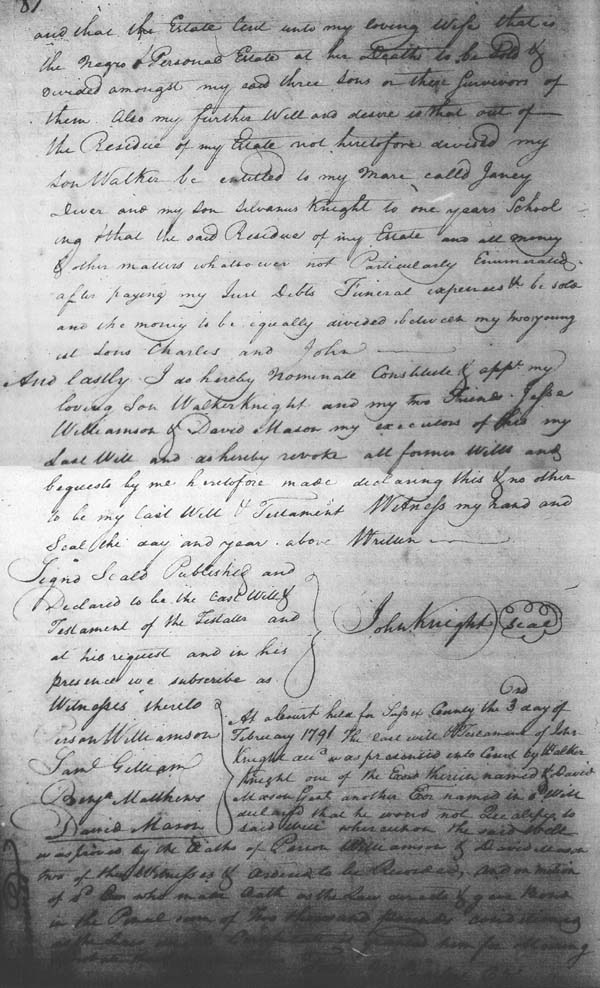 81
and that the Estate Lent unto my loving Wife that is
the Negro & Personal Estate at her Deaths to be Sold &
Divided amongst my said three Sons or these Survivors of
them. Also my further Will and desire is that out of
the Residue of my Estate not heretofore divided my
son Walker be entitled to my Mare calld Janey
Diver and my son Silvanus Knight to one years School
ing & that the said Residue of my Estate and all money
& other matters whatsoever not Particularly Enumerated
after paying my Just Debts Funeral expences &c be sold
and the money to be equally divided between my two young
est Sons Charles and John
And lastly I do hereby Nominate Constitute & appt. my
loving Son Walker Knight and my two Friends Jesse
Williamson & David Mason my executors of this my
Last Will and do hereby revoke all former Wills and
bequests by me heretofore made declaring this & no other
to be my Last Will & Testament Witness my hand and
Seal the day and year above Written
Sign'd Seald Publishd and
Declared to be the Last Will &
Testament of the Testator and
at his request and in his
presence we subscribe as
Witnesses thereto
John Knight Seal
Williamson
Saml. Gilliam
Benja. Matthews
David Mason
At a Court held for Sussex County the 3rd day of
February 1791 The last will & Testament of John
Knight decd. was presented into Court by Walker
Knight one of the Exors therein named & David
Mason Gent another Exor named in sd. Will
declared that he would not Qualify to
said Will whereupon the said Will
was proved by the Oaths of Person Williamson & David Mason
two of the Witnesses & Ordered to be Recorded, and on motion
of sd. Exor who made Oath as the Law directs & gave Bond
in the Penal sum of Two thousand pounds conditioned
as the Law him for obtaining